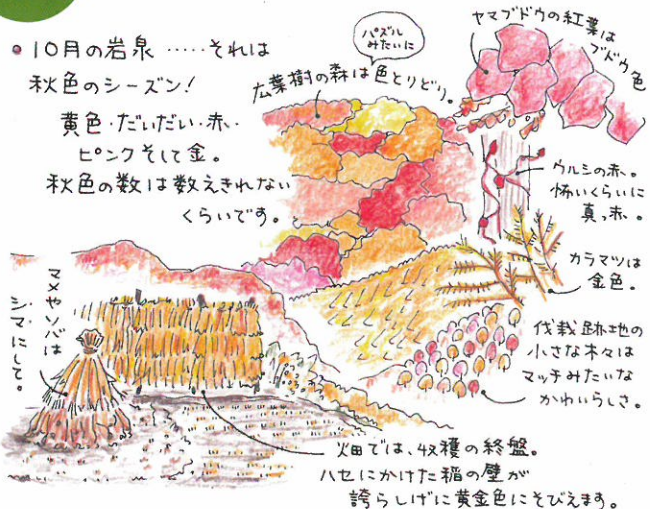 10月の岩泉 ……それは
秋色のシーズン!
黄色・だいだい・赤・
ピンクそして金。
秋色の数は数えきれない
くらいです。
パズル
みたいに
広葉樹の森は色とりどり。
ヤマブドウの紅葉は
ブドウ色
ウルシの赤。
怖いくらいに
真っ赤。
カラマツは
金色。
伐栽跡地の
小さな木々は
マッチみたいな
かわいらしさ。
マメやソバは
シマにして。
畑では、収穫の終盤。
ハセにかけた稲の壁が
誇らしげに黄金色にそびえます。